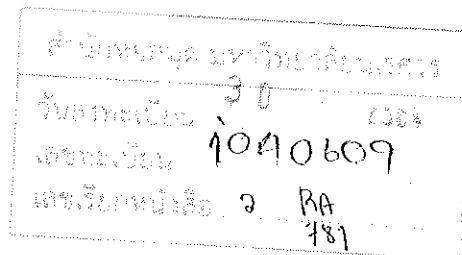 สำนักหอสมุด มหาวิทยาลัยนเรศวร
วันลงทะเบียน
เลขทะเบียน 1040609
เลขเรียกหนังสือ ว RA
781